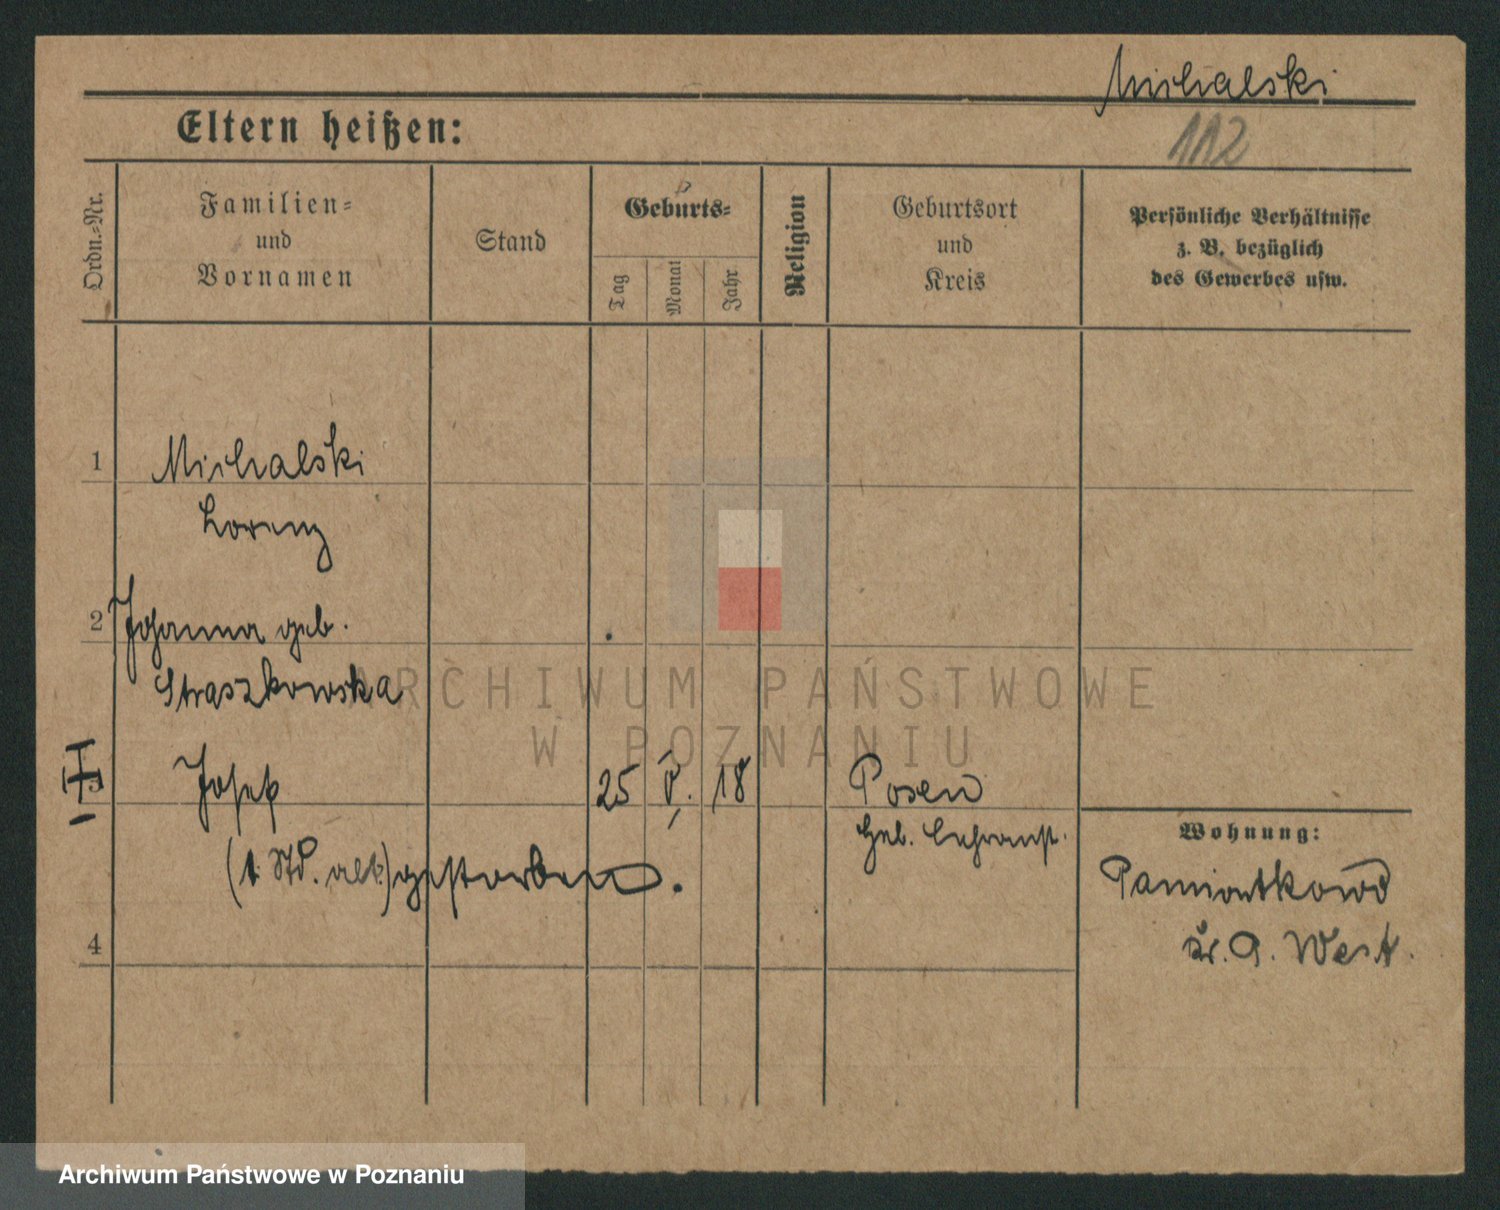 Michalski
Eltern heißen:
112
Ordn.-Nr.
Familien-
und
Vornamen
Stand
Geburts-
Tag
Monat
Jahr
Religion
Geburtsort
und
Kreis
Persönliche Verhältnisse
z. B. bezüglich
des Gewerbes usw.
1
Michalski
Lorenz
2
Johanna geb.
Straszkowska
3
Josef
25 V. 18
Posen
Heb. Lehranst.
(1 Std. alt) gestorben.
4
Wohnung:
Pamiontkowo
Kr. P. West.
ARCHIWUM PAŃSTWOWE
W POZNANIU
Archiwum Państwowe w Poznaniu